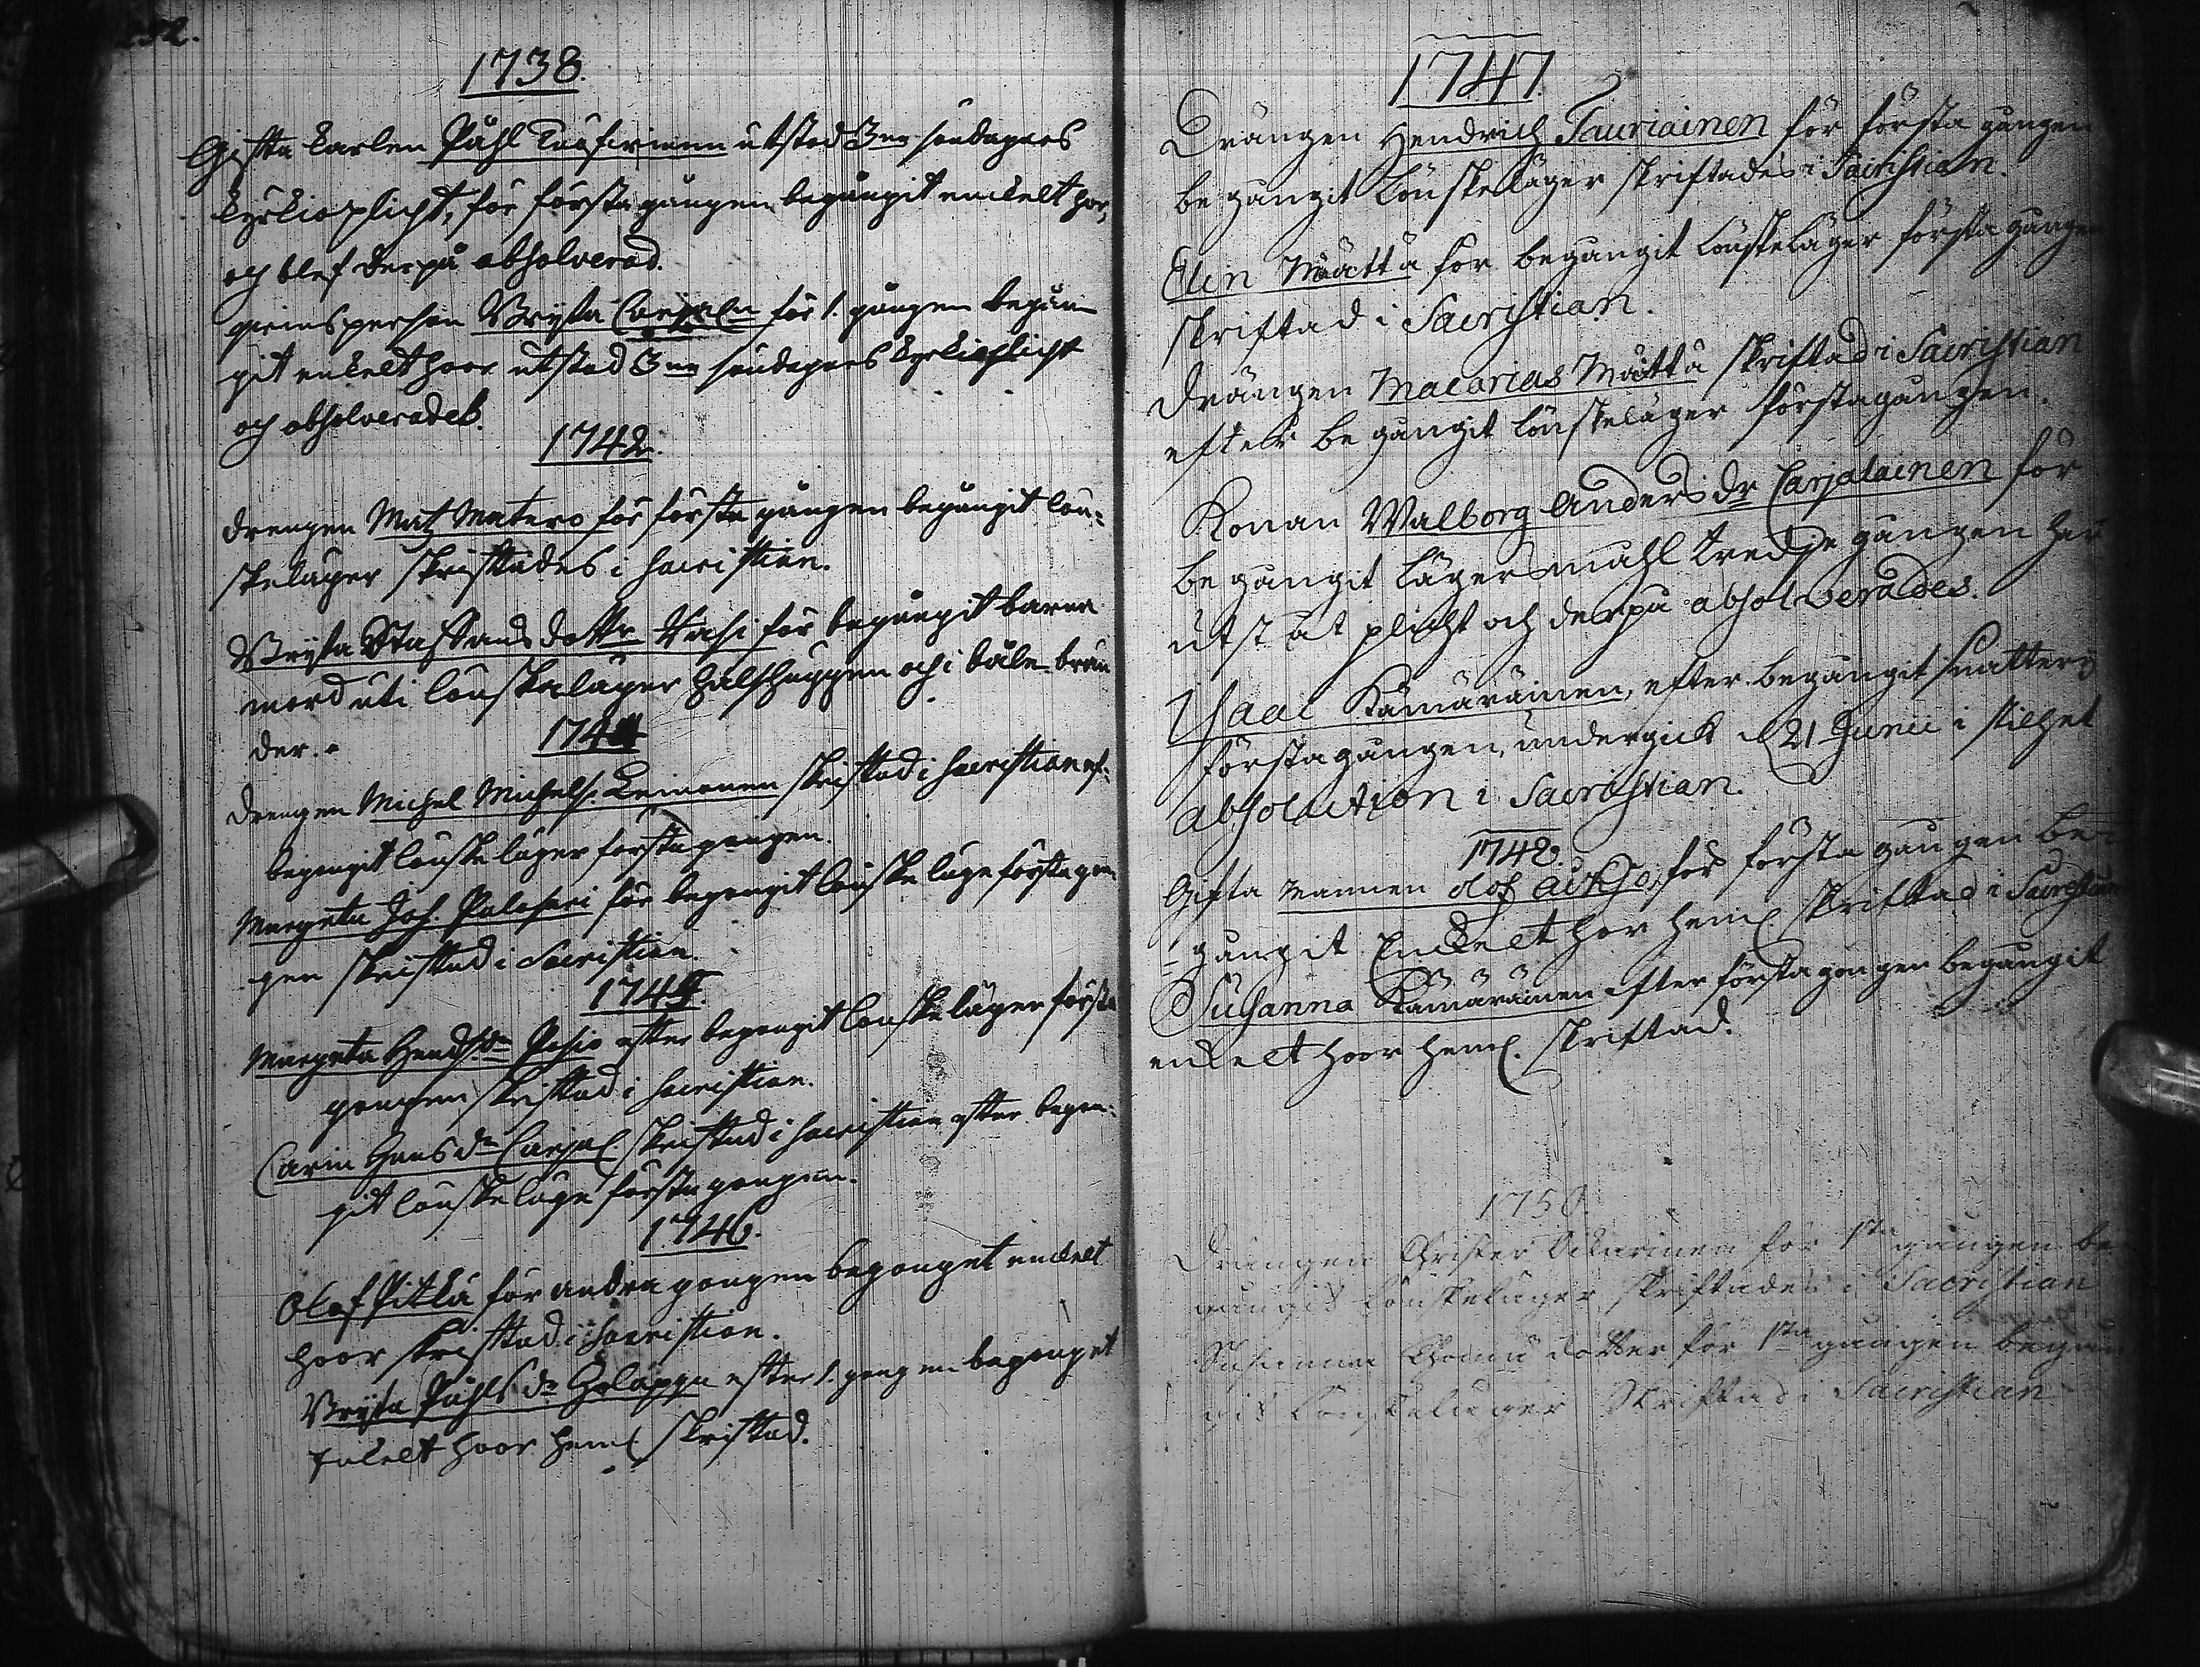 1738.
Gifta karlen Påhl utstod 3ne söndagars
kyrkioplicht, för första gången begångit enkelt hor,
och blef derpå absolverad.
qvinspersonen Brysta för 1. gången begån
git enkelt hoor utstod 3ne söndagars kyrkioplicht
och absolverades.
1742.
drengen Matz Matero för första gången begångit lön-
skeläger skriftades i sacristian.
Brysta Staffans dottr för begångit barna
mord uti lönskaläger halshuggen och i båle brän
der.
174
drengen Michel Michelss. Leinonen skriftad i sacristian ef-
begongit lönskeläger första gongen.
Margeta Joh. för begongit lönske läge första gon-
gen skriftad i Sacristian.
174
Margeta Hendsdr Pesio efter begongit lönskeläger första
gongen skriftad i sacristian.
Carin Hansdr Carjal. skriftad i sacristian efter begon-
git lönskeläge första gongen.
1746.
Olof Pitkä för andra gongen begonget enkelt
hoor skriftad i sacristian.
Brysta Påhlsdr efter 1. gongen begonget
enkelt hoor heml. skriftad.
1747
Drängen Hendrich Tauriainen för första gången
begångit lönskeläger skriftades i Sacristian.
Elin Määttä för begångit lönskeläger första gången
skriftad i Sacristian.
Drängen Macarias Määttä skriftad i Sacristian
efter begångit lönskeläger första gången.
Konan Walborg Anders dr Carjalainen för
begångit lägersmåhl tredje gången har
utståt plicht och derpå absolverades.
Isaac Kämäräinen, efter begångit snatteri
första gången, undergick d. 21 Junii i stilhet
absolution i Sacristian.
1748.
Gifta mannen Olof för första gången be-
gångit Enkelt hor heml. skriftad i Sacristian
Susanna Kämäräinen efter första gången begångit
enkelt hoor heml. skriftad.
1750.
Drängen Christer för 1sta gången be
gångit lönskeläger skriftades i Sacristian
Susanna dotter för 1sta gången begån
git lönskeläger Skriftad i Sacristian